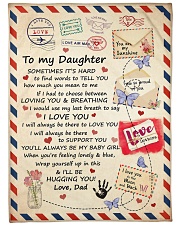 LOVE
LOVE AIR MAIL
You are my
Sunshine
To my Daughter
SOMETIMES IT'S HARD
to find words to TELL YOU
how much you mean to me
If I had to choose between
LOVING YOU & BREATHING
I would use my last breath to say
I LOVE YOU
I will always be there to LOVE YOU
I will always be there
to SUPPORT YOU
YOU'LL ALWAYS BE MY BABY GIRL
When you're feeling lonely & blue,
Wrap yourself up in this
& I'LL be
HUGGING YOU!
Love, Dad
Love
I love you
to the
Moon
& Back